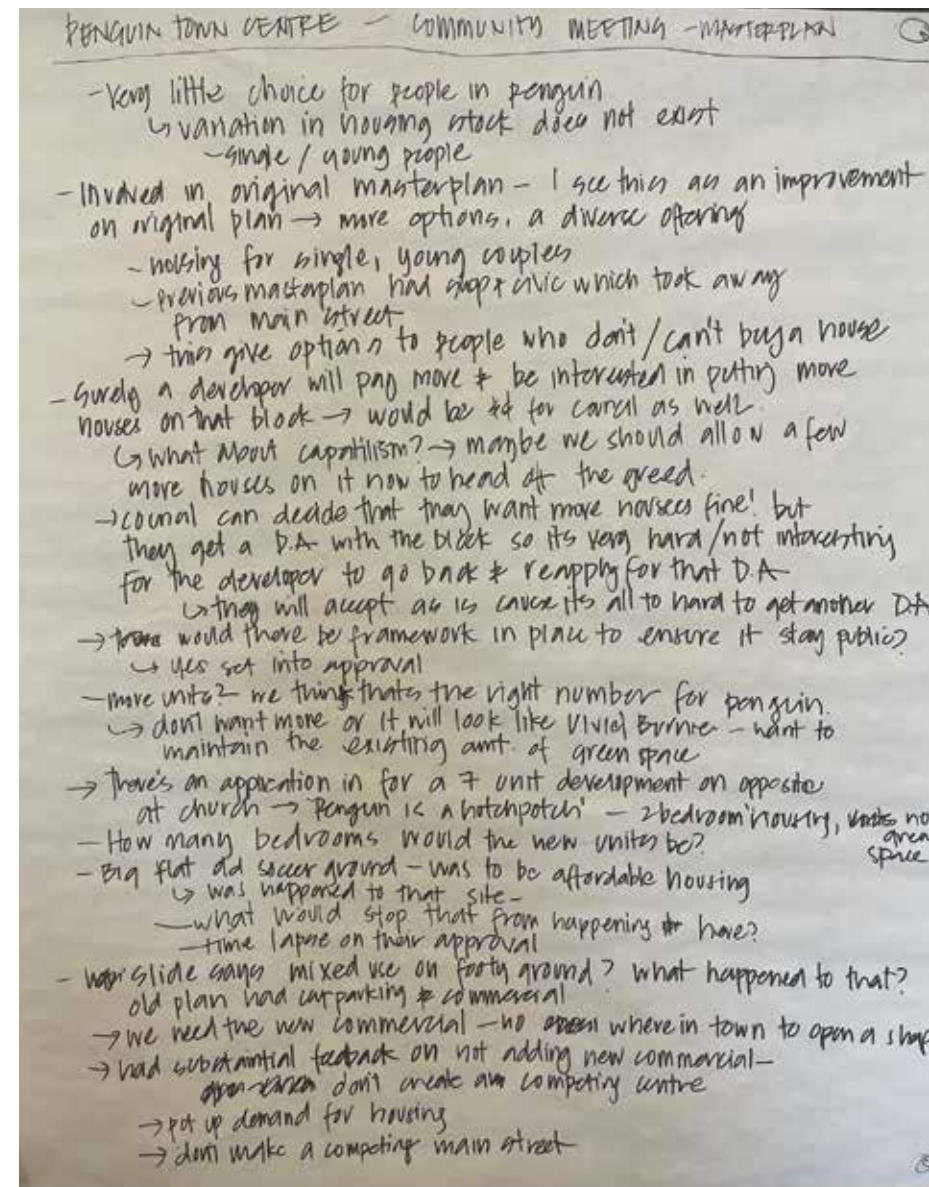 PENGUIN TOWN CENTRE - COMMUNITY MEETING - MASTERPLAN
- Very little choice for people in penguin
↳ variation in housing stock does not exist
- single / young people
- Involved in original masterplan - I see this as an improvement
on original plan → more options, a diverse offering
- housing for single, young couples
- previous masterplan had shop + civic which took away
from main street
→ this give options to people who don't/can't buy a house
- Surely a developer will pay more & be interested in putting more
houses on that block → would be for council as well.
↳ what about capatilism? → maybe we should allow a few
more houses on it now to head off the greed.
→ council can decide that they want more houses fine! but
they get a D.A with the block so its very hard/not interesting
for the developer to go back & reapply for that D.A
↳ they will accept as is cause its all to hard to get another D.A
→ would there be framework in place to ensure it stay public?
↳ yes set into approval
- more units? - we think thats the right number for penguin.
↳ dont want more or it will look like Burnie - want to
maintain the existing amt. of green space
→ There's an application in for a 7 unit development on opposite
at church → 'Penguin is a hotchpotch' - 2 bedroom housing, no
green
space
- How many bedrooms would the new units be?
- Big flat old soccer ground - was to be affordable housing
↳ was happened to that site -
- what would stop that from happening here?
- time lapse on their approval
- slide says mixed use on footy ground? what happened to that?
old plan had carparking & commercial
→ we need the new commercial - no where in town to open a shop
→ had substantial feedback on not adding new commercial -
dont create competing centre
→ put up demand for housing
→ dont make a competing main street